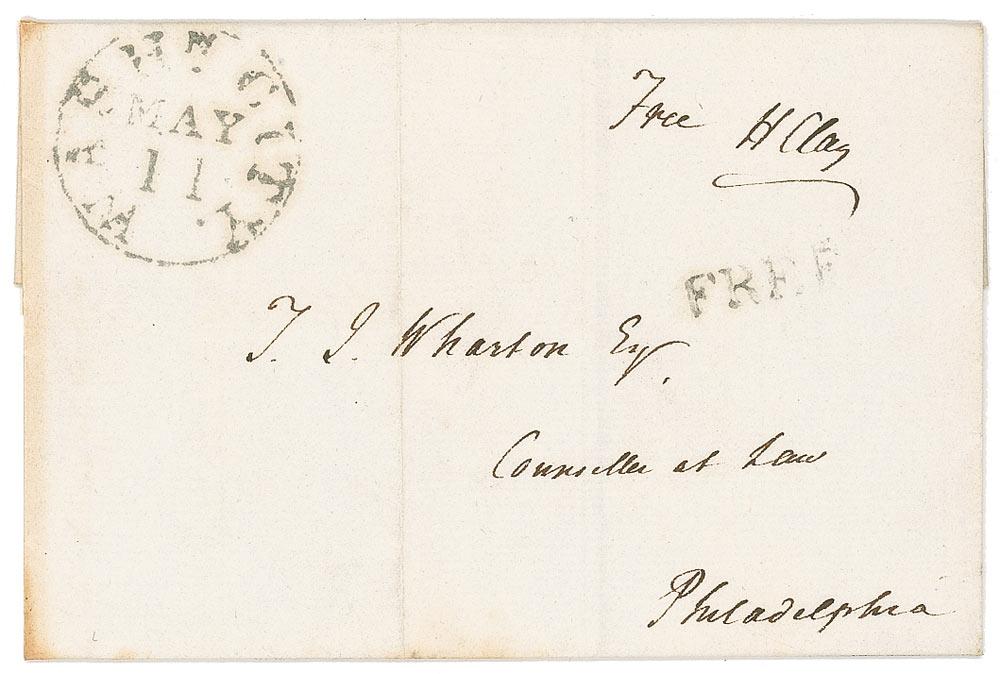 WASHN. CITY
MAY
11
Free H Clay
FREE
T. I. Wharton Esq.
Counseller at Law
Philadelphia